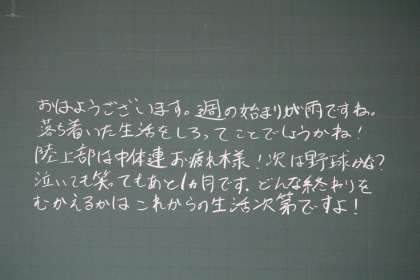 おはようございます。週の始まりが雨ですね。
落ち着いた生活をしろってことでしょうかね！
陸上部は中体連お疲れ様！次は野球かな？
泣いても笑ってもあと1ヵ月です。どんな終わりを
むかえるかは これからの生活次第ですよ！